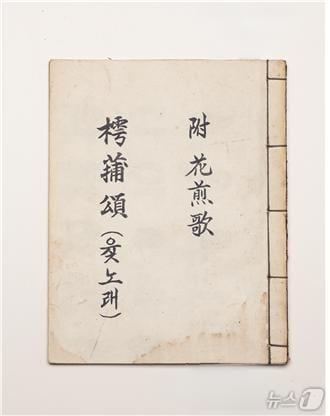 附 花煎歌
樗蒲頌(윷노래)
뉴스1